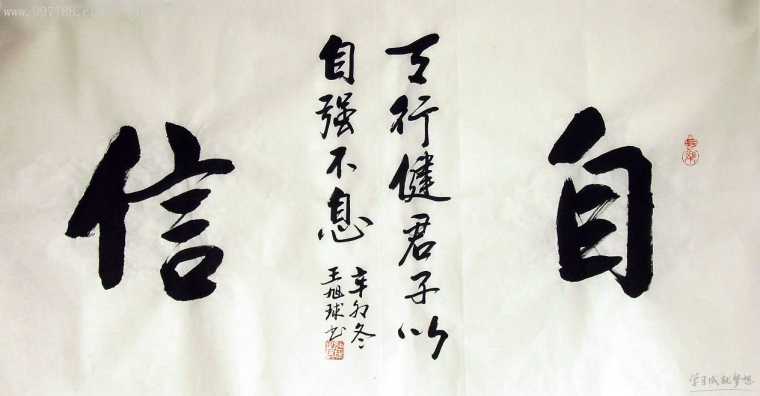 自
天行健君子以
自强不息
辛卯冬
王旭球书
信
www.997788.com
学习成就梦想